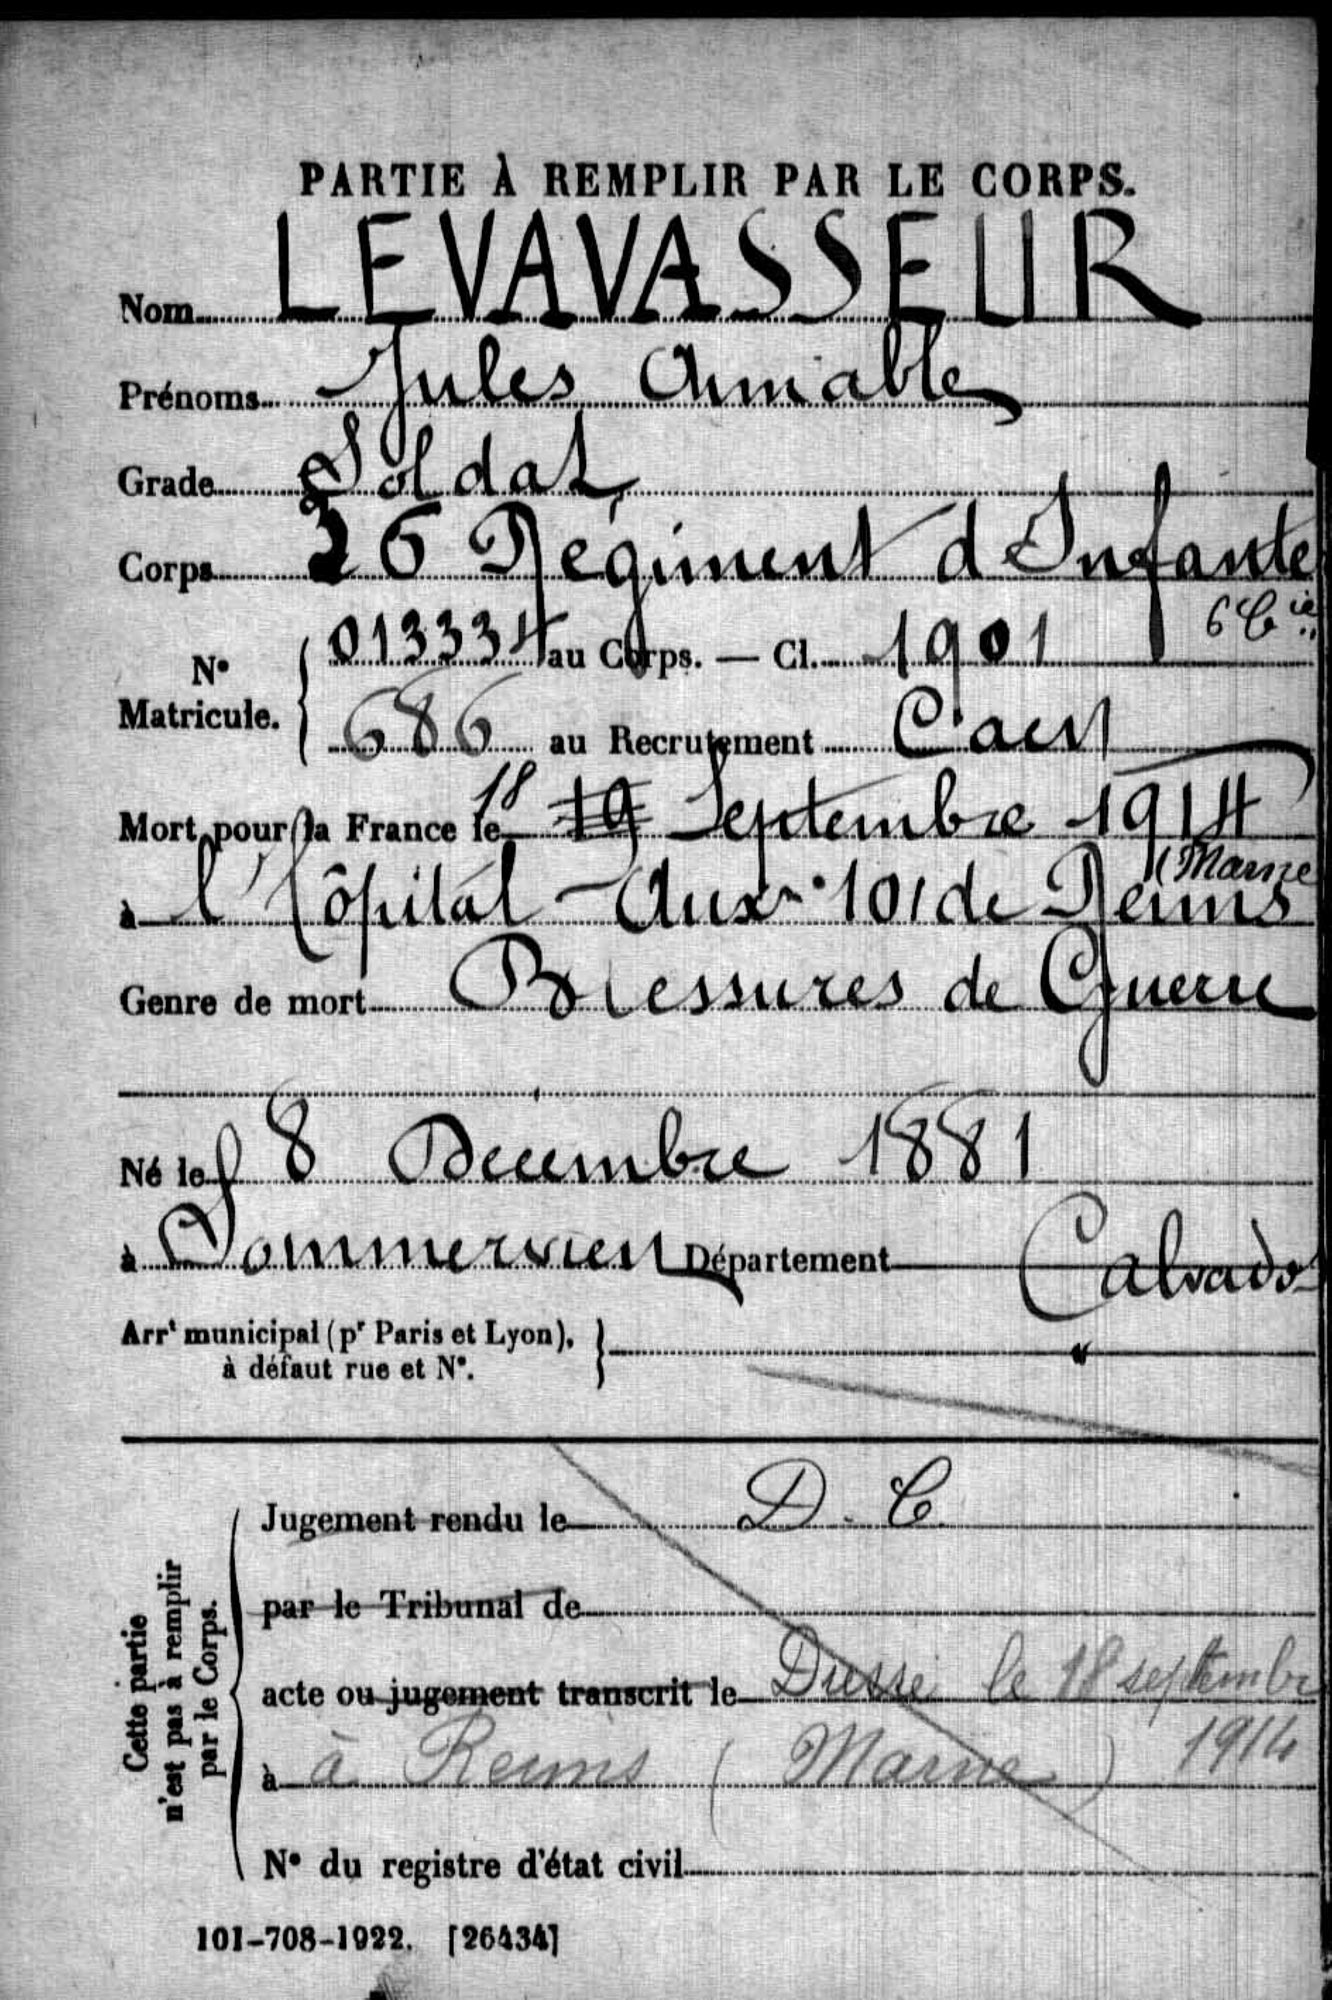 PARTIE À REMPLIR PAR LE CORPS.
Nom LEVAVASSEUR
Prénoms Jules Aimable
Grade Soldat
Corps 36 Régiment d'Infante
6 Cie
N° Matricule. 013334 au Corps. — Cl. 1901
686 au Recrutement Caen
Mort pour la France le 18 19 Septembre 1914
(Marne
à l'hôpital Auxre 101 de Reims
Genre de mort Blessures de Guerre
Né le 8 Décembre 1881
à Sommervieu Département Calvados
Arrt municipal (pr Paris et Lyon),
à défaut rue et N°.
Jugement rendu le D. C.
par le Tribunal de
acte ou jugement transcrit le Dressé le 18 septembre
1914
à à Reims (Marne)
N° du registre d'état civil
Cette partie
n'est pas à remplir
par le Corps.
101-708-1922. [26434]